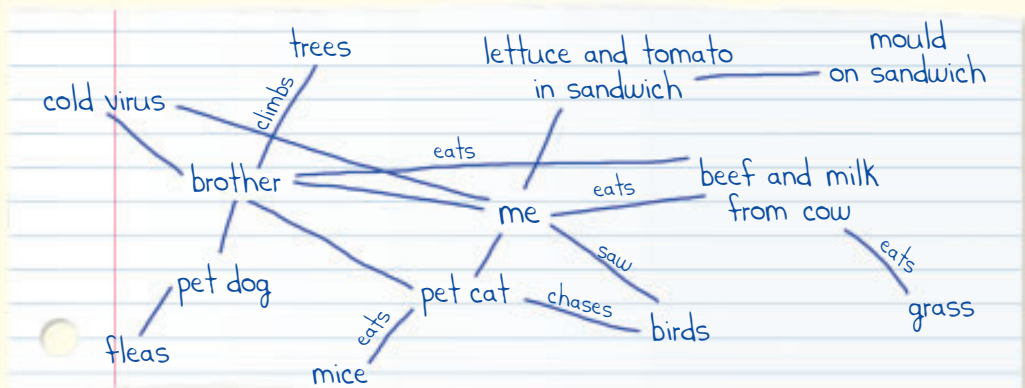 trees
lettuce and tomato
in sandwich
mould
on sandwich
cold virus
climbs
brother
eats
beef and milk
from cow
eats
me
saw
eats
pet dog
pet cat
chases
birds
grass
fleas
eats
mice